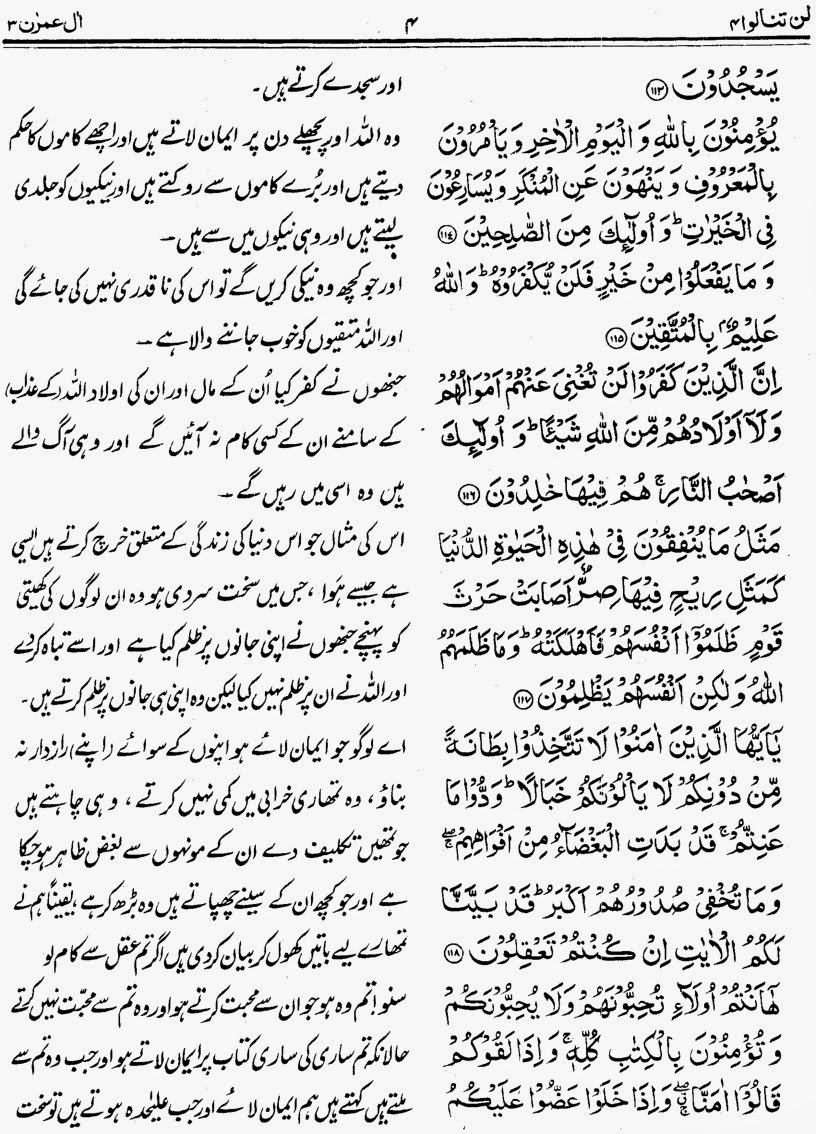 لن تنالوا ۴
۴
اٰل عمرٰن ۳
يَسْجُدُوْنَ ﴿۱۱۳﴾
يُؤْمِنُوْنَ بِاللّٰهِ وَ الْيَوْمِ الْاٰخِرِ وَ يَاْمُرُوْنَ
بِالْمَعْرُوْفِ وَ يَنْهَوْنَ عَنِ الْمُنْكَرِ وَ يُسَارِعُوْنَ
فِي الْخَيْرٰتِ ؕ وَ اُولٰٓئِكَ مِنَ الصّٰلِحِيْنَ ﴿۱۱۴﴾
وَ مَا يَفْعَلُوْا مِنْ خَيْرٍ فَلَنْ يُّكْفَرُوْهُ ؕ وَ اللّٰهُ
عَلِيْمٌۢ بِالْمُتَّقِيْنَ ﴿۱۱۵﴾
اِنَّ الَّذِيْنَ كَفَرُوْا لَنْ تُغْنِيَ عَنْهُمْ اَمْوَالُهُمْ
وَ لَاۤ اَوْلَادُهُمْ مِّنَ اللّٰهِ شَيْـًٔا ؕ وَ اُولٰٓئِكَ
اَصْحٰبُ النَّارِ ۚ هُمْ فِيْهَا خٰلِدُوْنَ ﴿۱۱۶﴾
مَثَلُ مَا يُنْفِقُوْنَ فِيْ هٰذِهِ الْحَيٰوةِ الدُّنْيَا
كَمَثَلِ رِيْحٍ فِيْهَا صِرٌّ اَصَابَتْ حَرْثَ
قَوْمٍ ظَلَمُوْۤا اَنْفُسَهُمْ فَاَهْلَكَتْهُ ؕ وَ مَا ظَلَمَهُمُ
اللّٰهُ وَ لٰكِنْ اَنْفُسَهُمْ يَظْلِمُوْنَ ﴿۱۱۷﴾
يٰۤاَيُّهَا الَّذِيْنَ اٰمَنُوْا لَا تَتَّخِذُوْا بِطَانَةً
مِّنْ دُوْنِكُمْ لَا يَاْلُوْنَكُمْ خَبَالًا ؕ وَدُّوْا مَا
عَنِتُّمْ ۚ قَدْ بَدَتِ الْبَغْضَآءُ مِنْ اَفْوَاهِهِمْ ۚۖ
وَ مَا تُخْفِيْ صُدُوْرُهُمْ اَكْبَرُ ؕ قَدْ بَيَّنَّا
لَكُمُ الْاٰيٰتِ اِنْ كُنْتُمْ تَعْقِلُوْنَ ﴿۱۱۸﴾
هٰۤاَنْتُمْ اُولَآءِ تُحِبُّوْنَهُمْ وَلَا يُحِبُّوْنَكُمْ
وَ تُؤْمِنُوْنَ بِالْكِتٰبِ كُلِّهٖ ۚ وَ اِذَا لَقُوْكُمْ
قَالُوْۤا اٰمَنَّا ۖۗۚ وَ اِذَا خَلَوْا عَضُّوْا عَلَيْكُمُ
اور سجدے کرتے ہیں۔
وہ اللہ اور پچھلے دن پر ایمان لاتے ہیں اور اچھے کاموں کا حکم
دیتے ہیں اور بُرے کاموں سے روکتے ہیں اور نیکیوں کو جلدی
لیتے ہیں اور وہی نیکوں میں سے ہیں۔
اور جو کچھ وہ نیکی کریں گے تو اس کی ناقدری نہیں کی جائے گی
اور اللہ متقیوں کو خوب جاننے والا ہے۔
جنھوں نے کفر کیا اُن کے مال اور ان کی اولاد اللہ (کے عذاب)
کے سامنے ان کے کسی کام نہ آئیں گے اور وہی آگ والے
ہیں وہ اسی میں رہیں گے۔
اس کی مثال جو اس دنیا کی زندگی کے متعلق خرچ کرتے ہیں ایسی
ہے جیسے ہَوا، جس میں سخت سردی ہو وہ ان لوگوں کی کھیتی
کو پہنچے جنھوں نے اپنی جانوں پر ظلم کیا ہے اور اسے تباہ کردے
اور اللہ نے ان پر ظلم نہیں کیا لیکن وہ اپنی ہی جانوں پر ظلم کرتے ہیں۔
اے لوگو جو ایمان لائے ہو اپنوں کے سوائے (اپنے) رازدار نہ
بناؤ، وہ تمھاری خرابی میں کمی نہیں کرتے، وہی چاہتے ہیں
جو تمھیں تکلیف دے ان کے مونہوں سے بغض ظاہر ہوچکا
ہے اور جو کچھ ان کے سینے چھپاتے ہیں وہ بڑھ کر ہے، یقیناً ہم نے
تمھارے لیے باتیں کھول کر بیان کردی ہیں اگر تم عقل سے کام لو
سنو! تم وہ ہو جو ان سے محبت کرتے ہو اور وہ تم سے محبّت نہیں کرتے
حالانکہ تم ساری کی ساری کتاب پر ایمان لاتے ہو اور جب وہ تم سے
ملتے ہیں کہتے ہیں ہم ایمان لائے اور جب علیٰحدہ ہوتے ہیں تو سخت